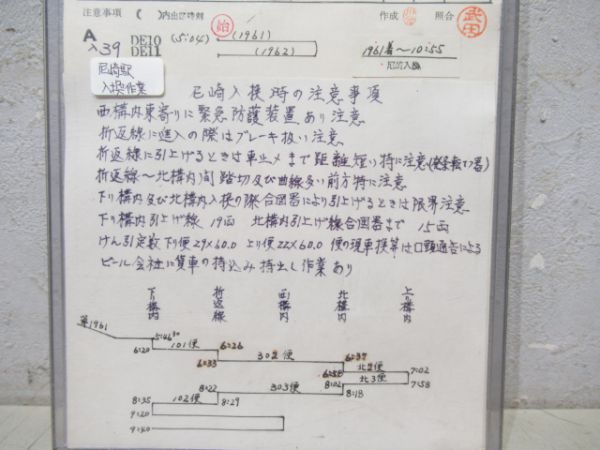 注意事項 ( )内出区時刻 作成 照合 武田
A入39 DE10 DE11 (5:04) 始 (1961) (1962)
1961着～10:55
尼崎入換
尼崎駅
入換作業
尼崎入換時の注意事項
西構内東寄りに緊急防護装置あり注意
折返線に進入の際はブレーキ扱い注意
折返線に引上げるときは車止メまで距離短い特に注意
折返線～北構内 踏切及び曲線多い前方特に注意
下り構内及び北構内入換の際合図器により引上げるときは限界注意
下り構内引上げ線 19両 北構内引上げ線合図器まで 15両
けん引定数下り便29×60.0 上り便22×60.0 便の現車換算は口頭通告による
ビール会社に貨車の持込み持出し作業あり
下り構内 折返線 西構内 北構内 上り構内
単1961
5:46³⁰ 101便 6:26 302便 6:37
6:20 6:33 6:55 北2便 7:02
8:22 303便 8:02 北3便 7:58
8:35 102便 8:29 8:13
9:20
9:40